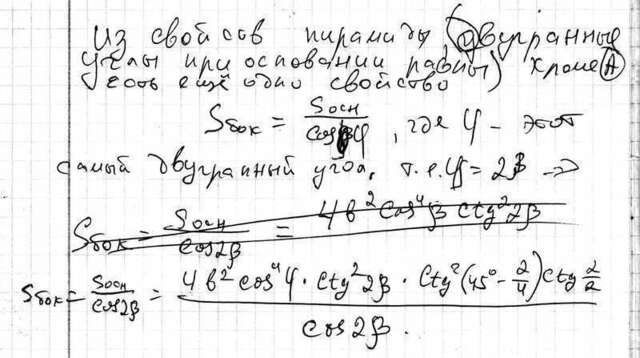 Из свойсов пирамиды (двугранные
углы при основании равны) кроме (А)
есть ещё одно свойство
Sбок = Sосн / cos φ , где φ - этот
самый двугранный угол, т.е. φ = 2β =>
Sбок = Sосн / cos2β = 4b² cos⁴β ctg² 2β
Sбок = Sосн / cos2β = 4b² cos⁴φ · ctg² 2β · ctg² (45° - α/4) ctg α/2 / cos 2β .